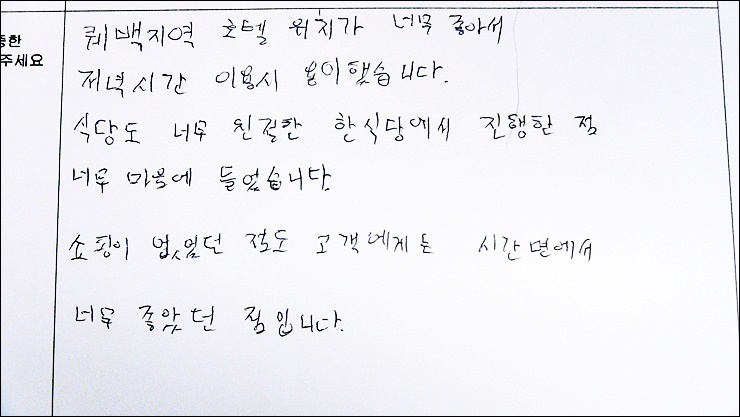 퀘백지역 호텔 위치가 너무 좋아서
저녁시간 이용시 용이했습니다.
식당도 너무 친절한 한식당에서 진행한 점
너무 마음에 들었습니다.
쇼핑이 없었던 점도 고객에게는 시간면에서
너무 좋았던 점입니다.
한
주세요